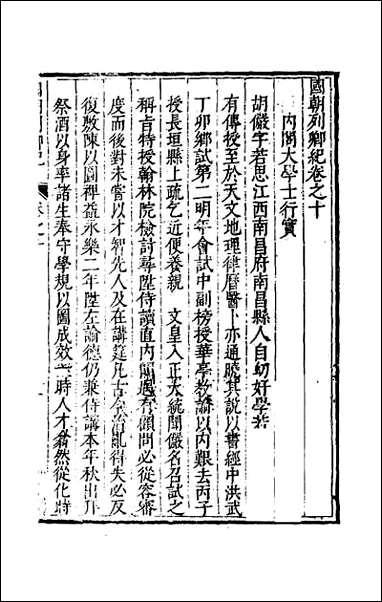 國朝列卿紀卷之十
內閣大學士行實
胡儼字若思江西南昌府南昌縣人自幼好學若
有傳授至於天文地理律曆醫卜亦通曉其說以書經中洪武
丁卯鄉試第二明年會試中副榜授華亭教諭以內艱去丙子
授長垣縣上疏乞近便養親 文皇入正大統聞儼名召試之
稱旨特授翰林院檢討尋陞侍讀直內閣遇有顧問必從容審
度而後對未嘗以才智先人及在講筵凡古今治亂得失必反
復敷陳以圖裨益永樂二年陞左諭德仍兼侍講本年秋出爲
祭酒以身率諸生奉守學規以圖成效一時人才翕然從化時